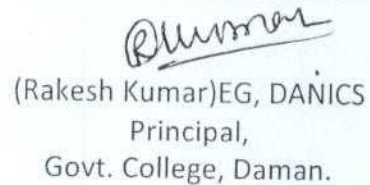 RKumar
(Rakesh Kumar)EG, DANICS
Principal,
Govt. College, Daman.